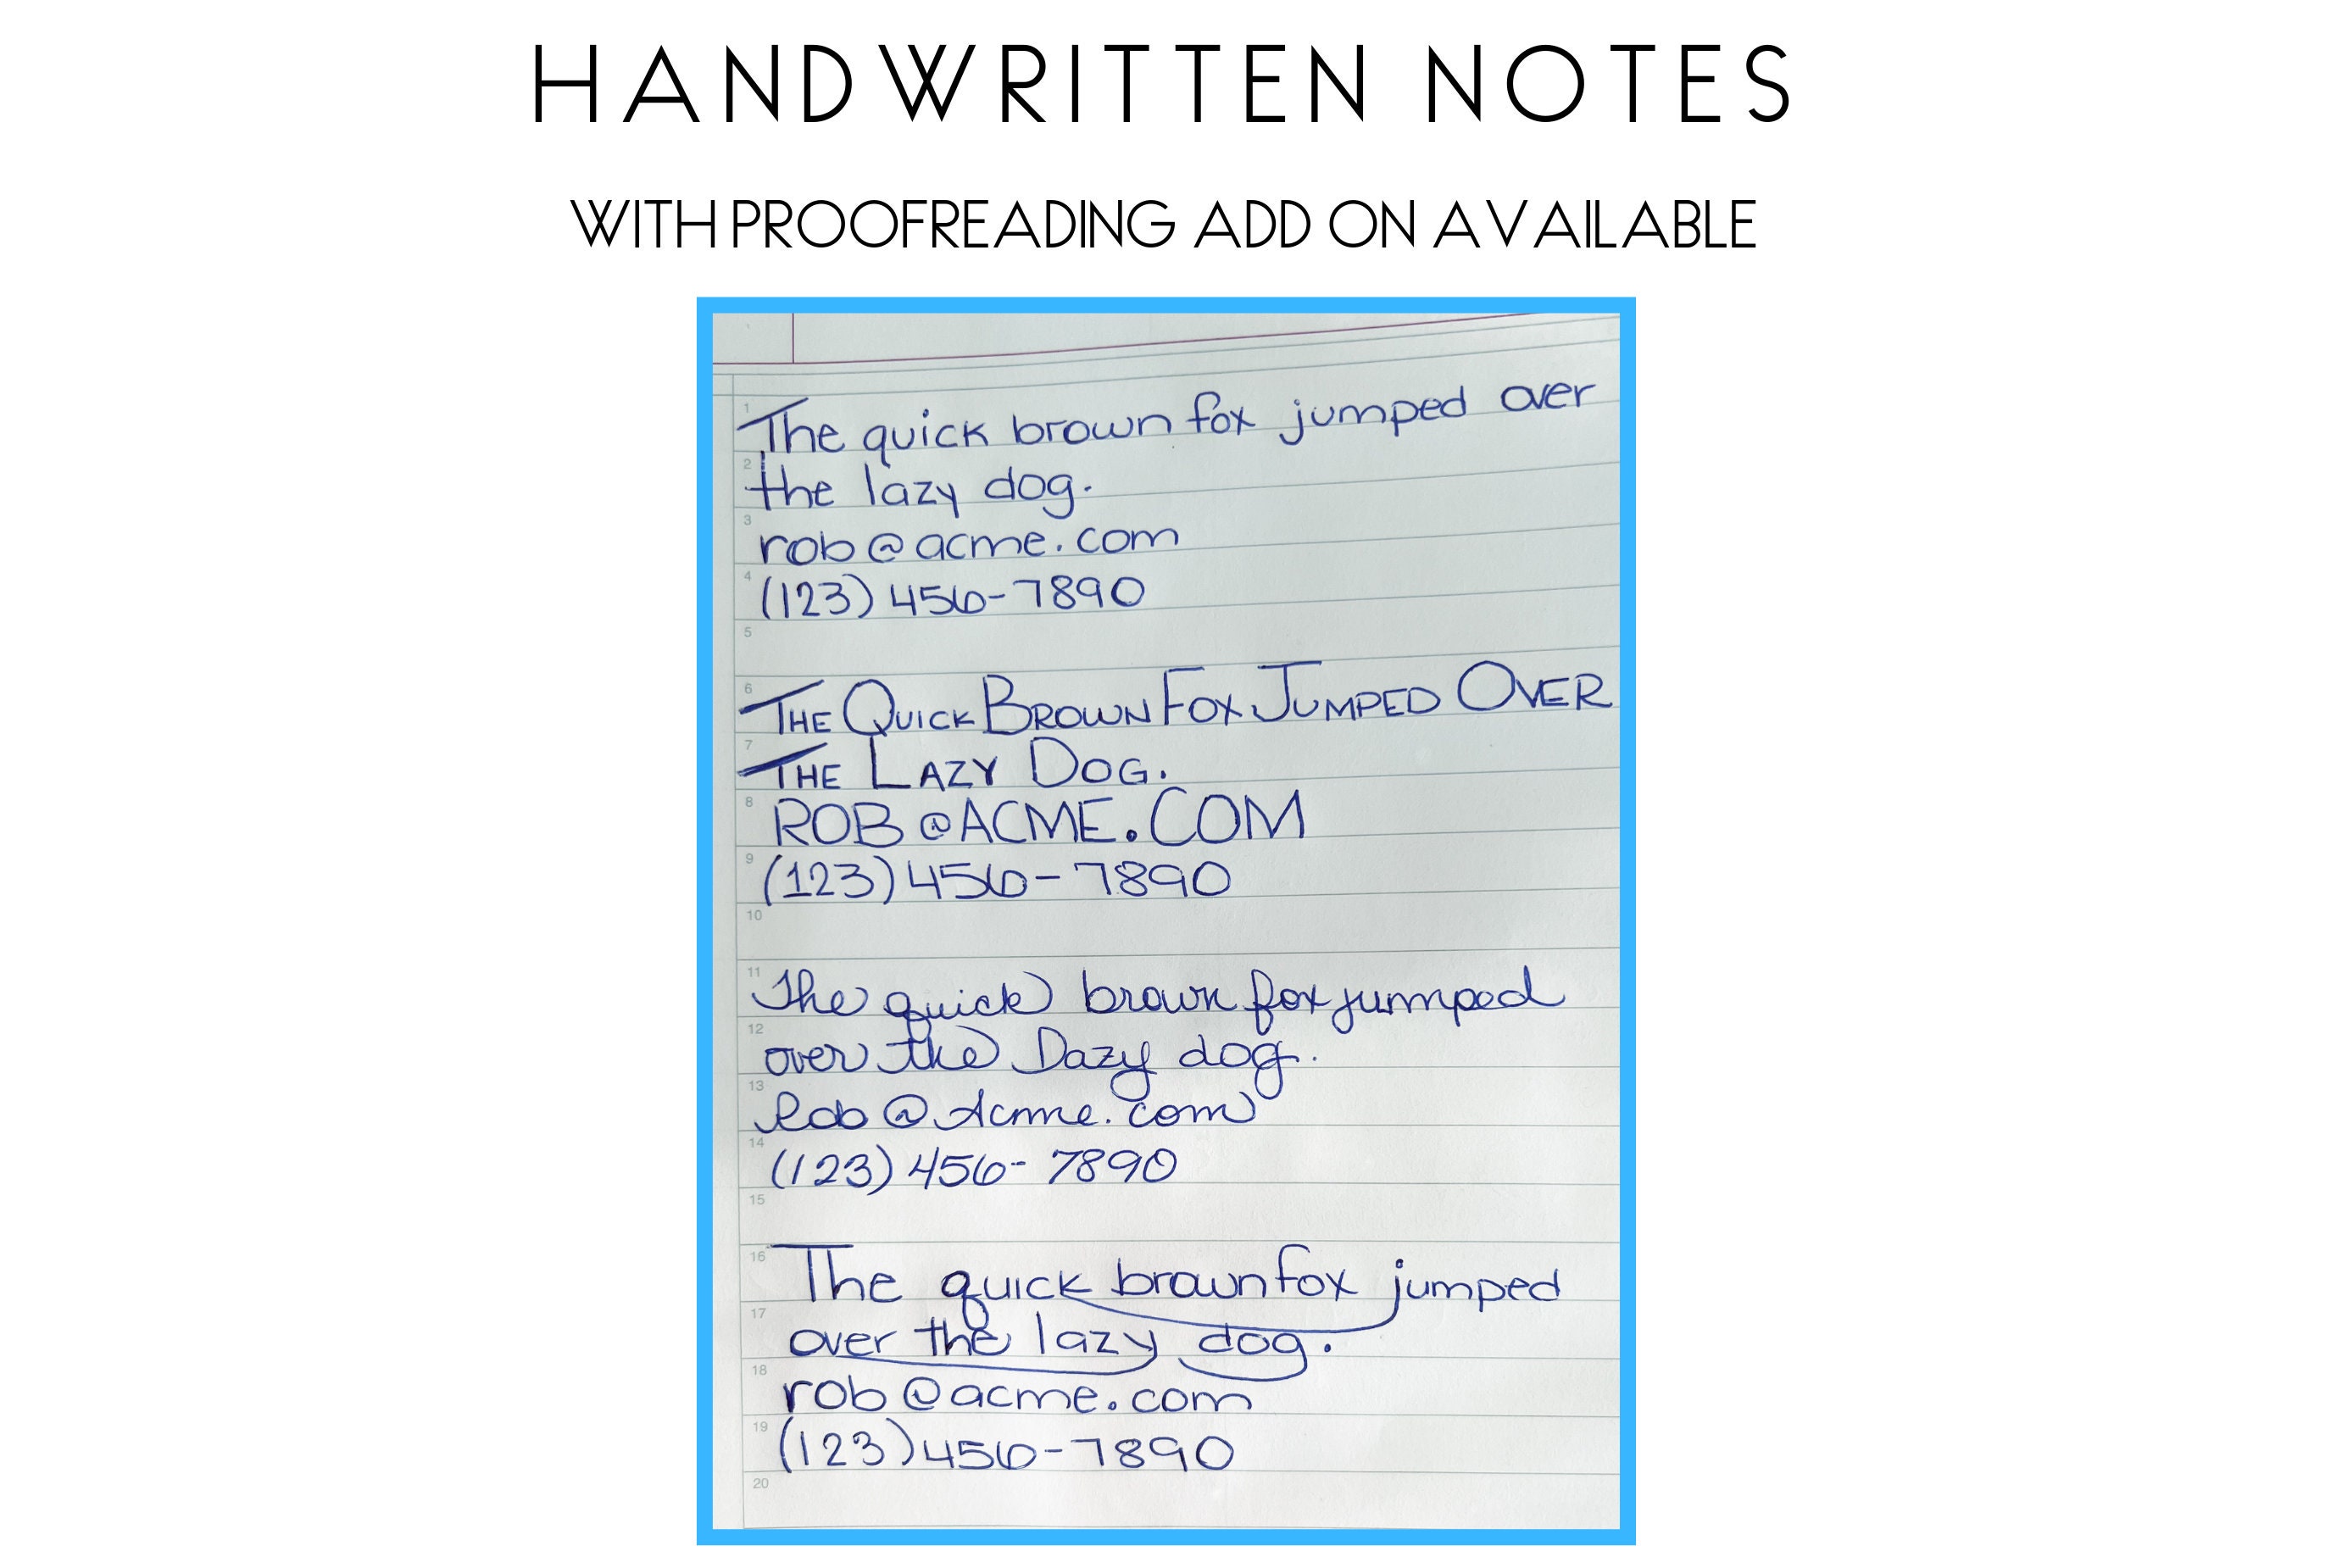 HANDWRITTEN NOTES
WITH PROOFREADING ADD ON AVAILABLE
1 The quick brown fox jumped over
2 the lazy dog.
3 rob@acme.com
4 (123) 456-7890
5
6 THE QUICK BROWN FOX JUMPED OVER
7 THE LAZY DOG.
8 ROB@ACME.COM
9 (123) 456-7890
10
11 The quick brown fox jumped
12 over the Dazy dog.
13 Rob@Acme.com
14 (123) 456-7890
15
16 The quick brown fox jumped
17 over the lazy dog.
18 rob@acme.com
19 (123) 456-7890
20